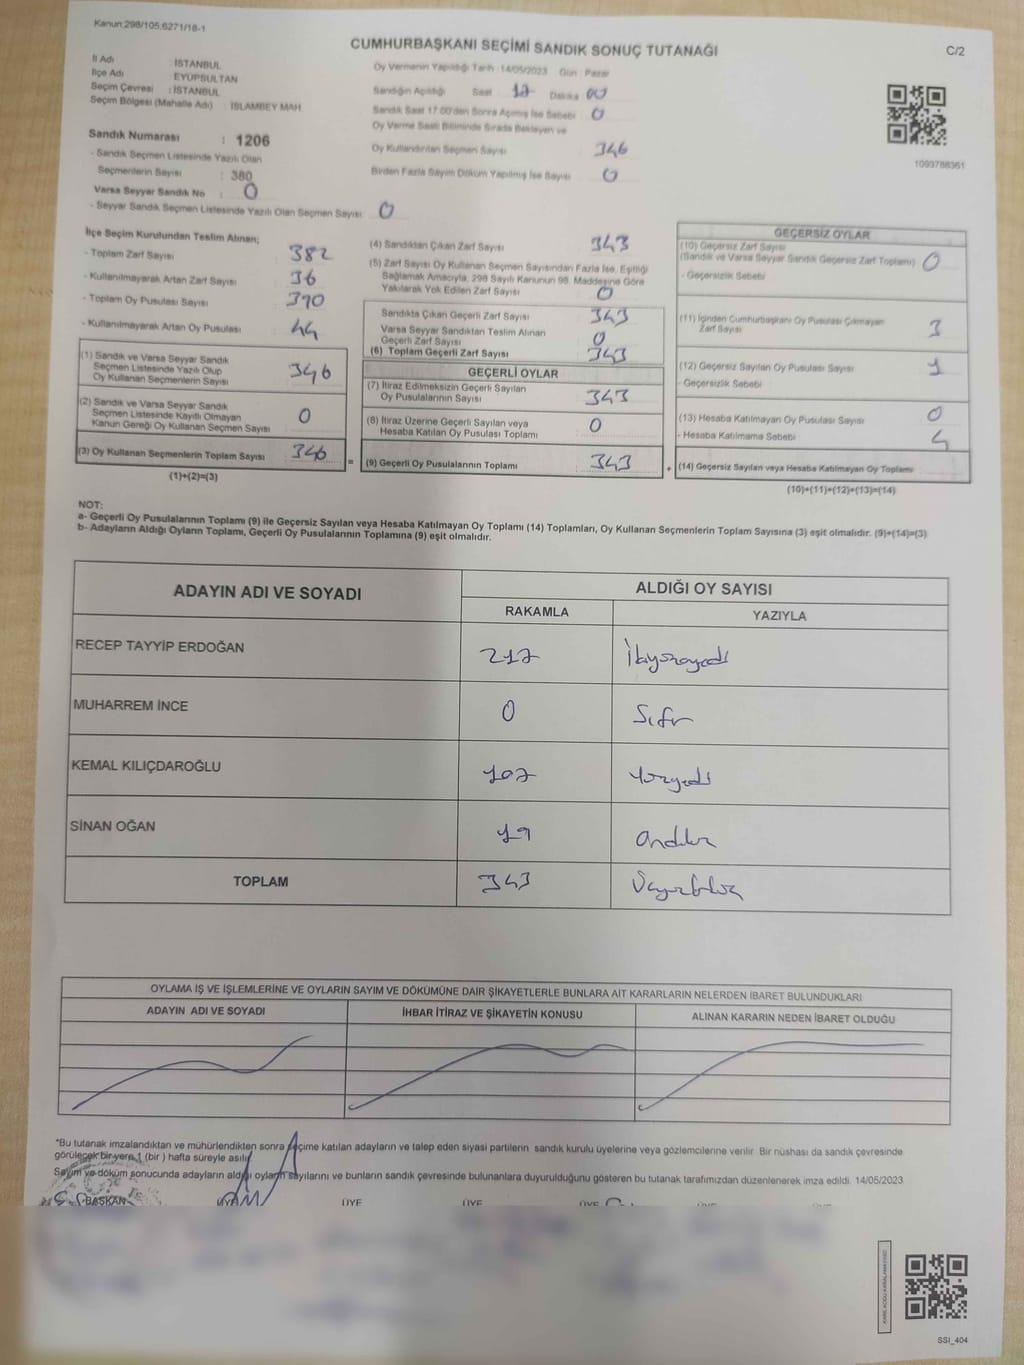 Kanun:298/105,6271/18-1
CUMHURBAŞKANI SEÇİMİ SANDIK SONUÇ TUTANAĞI
C/2
İl Adı : İSTANBUL
İlçe Adı : EYÜPSULTAN
Seçim Çevresi : İSTANBUL
Seçim Bölgesi (Mahalle Adı) : İSLAMBEY MAH
Sandık Numarası : 1206
- Sandık Seçmen Listesinde Yazılı Olan
Seçmenlerin Sayısı : 380
Varsa Seyyar Sandık No : 0
- Seyyar Sandık Seçmen Listesinde Yazılı Olan Seçmen Sayısı: 0
Oy Vermenin Yapıldığı Tarih :14/05/2023 Gün : Pazar
Sandığın Açıldığı Saat 17 Dakika 00
Sandık Saat 17:00'den Sonra Açılmış İse Sebebi 0
Oy Verme Saati Bitiminde Sırada Bekleyen ve
Oy Kullandırılan Seçmen Sayısı 346
Birden Fazla Sayım Döküm Yapılmış İse Sayısı 0
1093788361
İlçe Seçim Kurulundan Teslim Alınan;
- Toplam Zarf Sayısı 382
- Kullanılmayarak Artan Zarf Sayısı 36
- Toplam Oy Pusulası Sayısı 390
- Kullanılmayarak Artan Oy Pusulası 44
(1) Sandık ve Varsa Seyyar Sandık
Seçmen Listesinde Yazılı Olup
Oy Kullanan Seçmenlerin Sayısı 346
(2) Sandık ve Varsa Seyyar Sandık
Seçmen Listesinde Kayıtlı Olmayan
Kanun Gereği Oy Kullanan Seçmen Sayısı 0
(3) Oy Kullanan Seçmenlerin Toplam Sayısı 346
(1)+(2)=(3)
(4) Sandıktan Çıkan Zarf Sayısı 343
(5) Zarf Sayısı Oy Kullanan Seçmen Sayısından Fazla İse, Eşitliği
Sağlamak Amacıyla, 298 Sayılı Kanunun 98. Maddesine Göre
Yakılarak Yok Edilen Zarf Sayısı 0
Sandıkta Çıkan Geçerli Zarf Sayısı 343
Varsa Seyyar Sandıktan Teslim Alınan
Geçerli Zarf Sayısı 0
(6) Toplam Geçerli Zarf Sayısı 343
GEÇERLİ OYLAR
(7) İtiraz Edilmeksizin Geçerli Sayılan
Oy Pusulalarının Sayısı 343
(8) İtiraz Üzerine Geçerli Sayılan veya
Hesaba Katılan Oy Pusulası Toplamı 0
= (9) Geçerli Oy Pusulalarının Toplamı 343
GEÇERSİZ OYLAR
(10) Geçersiz Zarf Sayısı
(Sandık ve Varsa Seyyar Sandık Geçersiz Zarf Toplamı) 0
- Geçersizlik Sebebi
(11) İçinden Cumhurbaşkanı Oy Pusulası Çıkmayan
Zarf Sayısı 3
(12) Geçersiz Sayılan Oy Pusulası Sayısı 1
- Geçersizlik Sebebi
(13) Hesaba Katılmayan Oy Pusulası Sayısı 0
- Hesaba Katılmama Sebebi 4
+ (14) Geçersiz Sayılan veya Hesaba Katılmayan Oy Toplamı
(10)+(11)+(12)+(13)=(14)
NOT:
a- Geçerli Oy Pusulalarının Toplamı (9) ile Geçersiz Sayılan veya Hesaba Katılmayan Oy Toplamı (14) Toplamları, Oy Kullanan Seçmenlerin Toplam Sayısına (3) eşit olmalıdır. (9)+(14)=(3)
b- Adayların Aldığı Oyların Toplamı, Geçerli Oy Pusulalarının Toplamına (9) eşit olmalıdır.
ADAYIN ADI VE SOYADI
ALDIĞI OY SAYISI
RAKAMLA YAZIYLA
RECEP TAYYİP ERDOĞAN 217 İkiyüzonyedi
MUHARREM İNCE 0 Sıfır
KEMAL KILIÇDAROĞLU 107 Yüzyedi
SİNAN OĞAN 19 ondokuz
TOPLAM 343
OYLAMA İŞ VE İŞLEMLERİNE VE OYLARIN SAYIM VE DÖKÜMÜNE DAİR ŞİKAYETLERLE BUNLARA AİT KARARLARIN NELERDEN İBARET BULUNDUKLARI
ADAYIN ADI VE SOYADI İHBAR İTİRAZ VE ŞİKAYETİN KONUSU ALINAN KARARIN NEDEN İBARET OLDUĞU
*Bu tutanak imzalandıktan ve mühürlendikten sonra seçime katılan adayların ve talep eden siyasi partilerin sandık kurulu üyelerine veya gözlemcilerine verilir. Bir nüshası da sandık çevresinde
görülecek bir yere 1 (bir ) hafta süreyle asılır.
Sayım ve döküm sonucunda adayların aldığı oyların sayılarını ve bunların sandık çevresinde bulunanlara duyurulduğunu gösteren bu tutanak tarafımızdan düzenlenerek imza edildi. 14/05/2023
BAŞKAN ÜYE ÜYE ÜYE ÜYE ÜYE
SSI_404